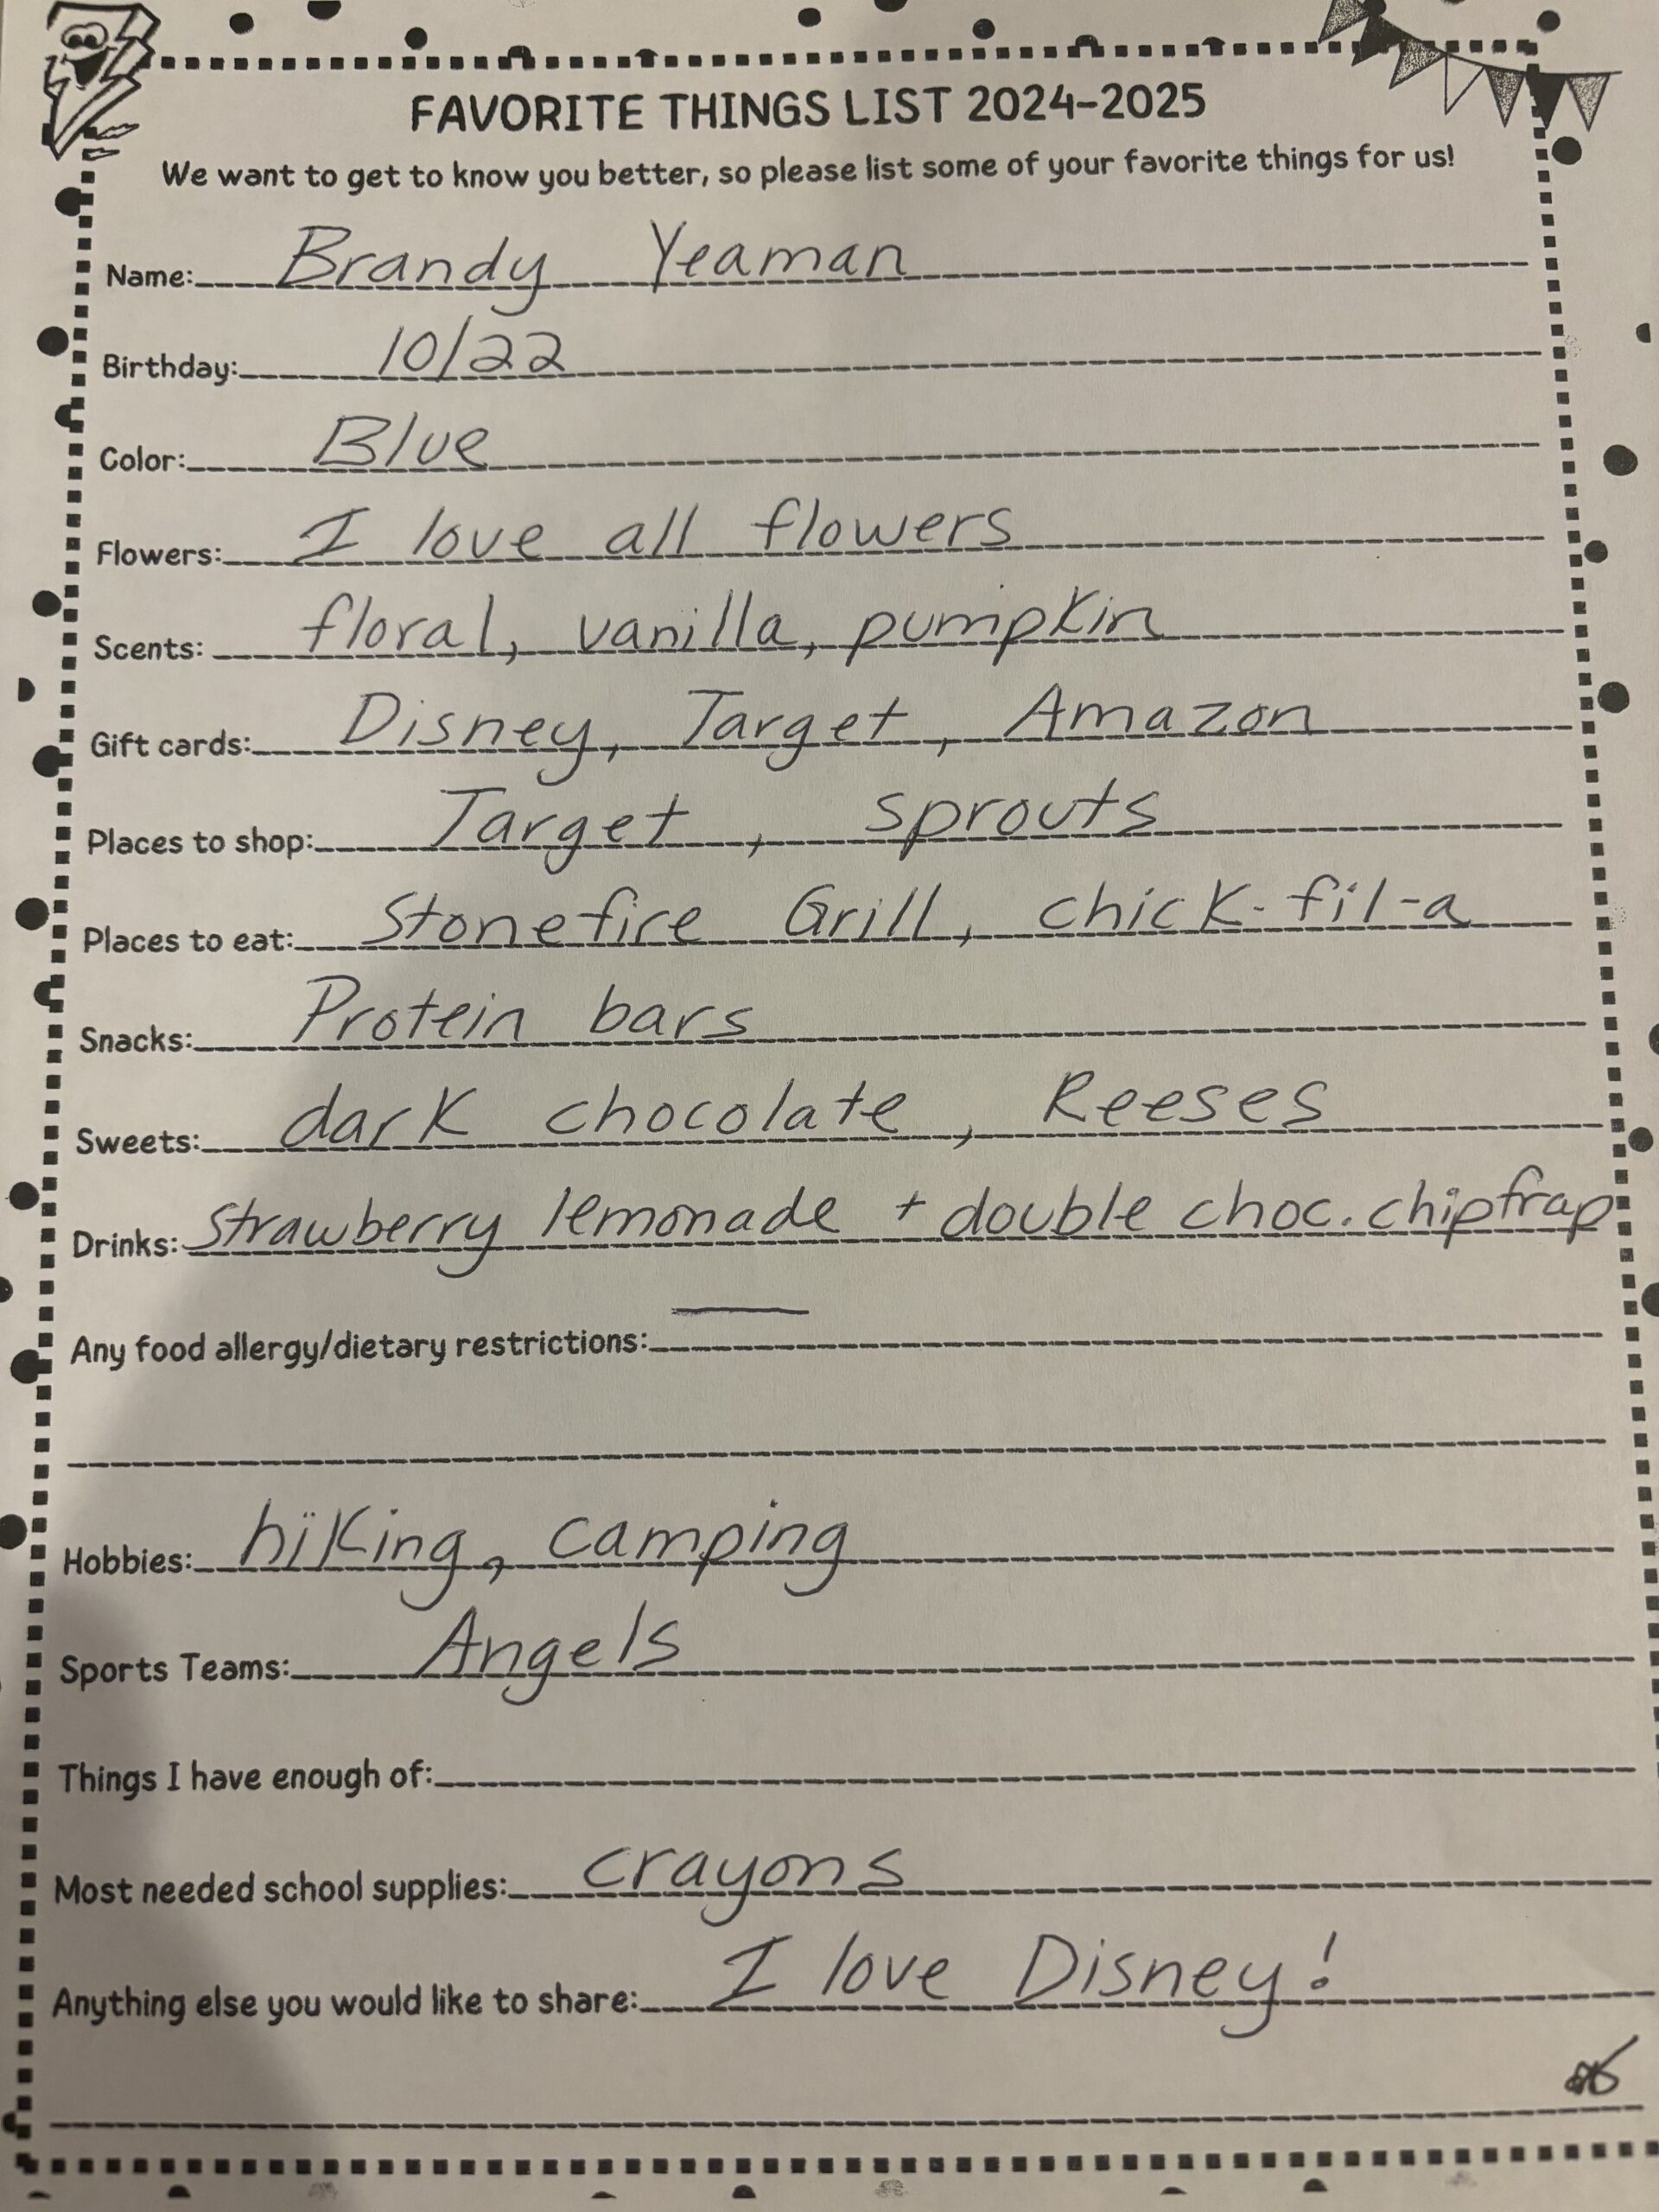 FAVORITE THINGS LIST 2024-2025
We want to get to know you better, so please list some of your favorite things for us!
Name: Brandy Yeaman
Birthday: 10/22
Color: Blue
Flowers: I love all flowers
Scents: floral, vanilla, pumpkin
Gift cards: Disney, Target, Amazon
Places to shop: Target, sprouts
Places to eat: Stonefire Grill, chick-fil-a
Snacks: Protein bars
Sweets: dark chocolate, Reeses
Drinks: strawberry lemonade + double choc. chip frap
Any food allergy/dietary restrictions: —
Hobbies: hiking, camping
Sports Teams: Angels
Things I have enough of:
Most needed school supplies: crayons
Anything else you would like to share: I love Disney!